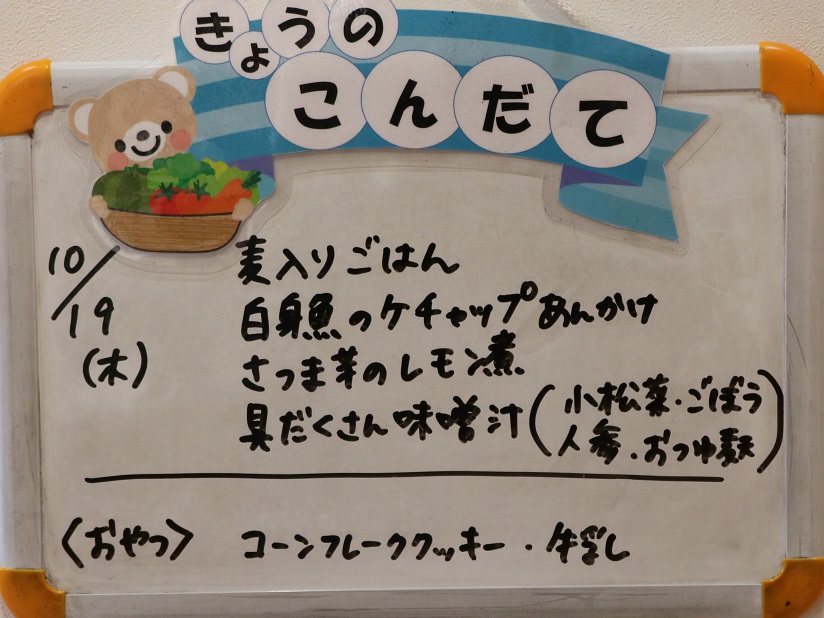 きょうの
こんだて
10/19
(木)
麦入りごはん
白身魚のケチャップあんかけ
さつま芋のレモン煮
具だくさん味噌汁(小松菜・ごぼう
人参・おつゆ麩)
〈おやつ〉 コーンフレーククッキー・牛乳